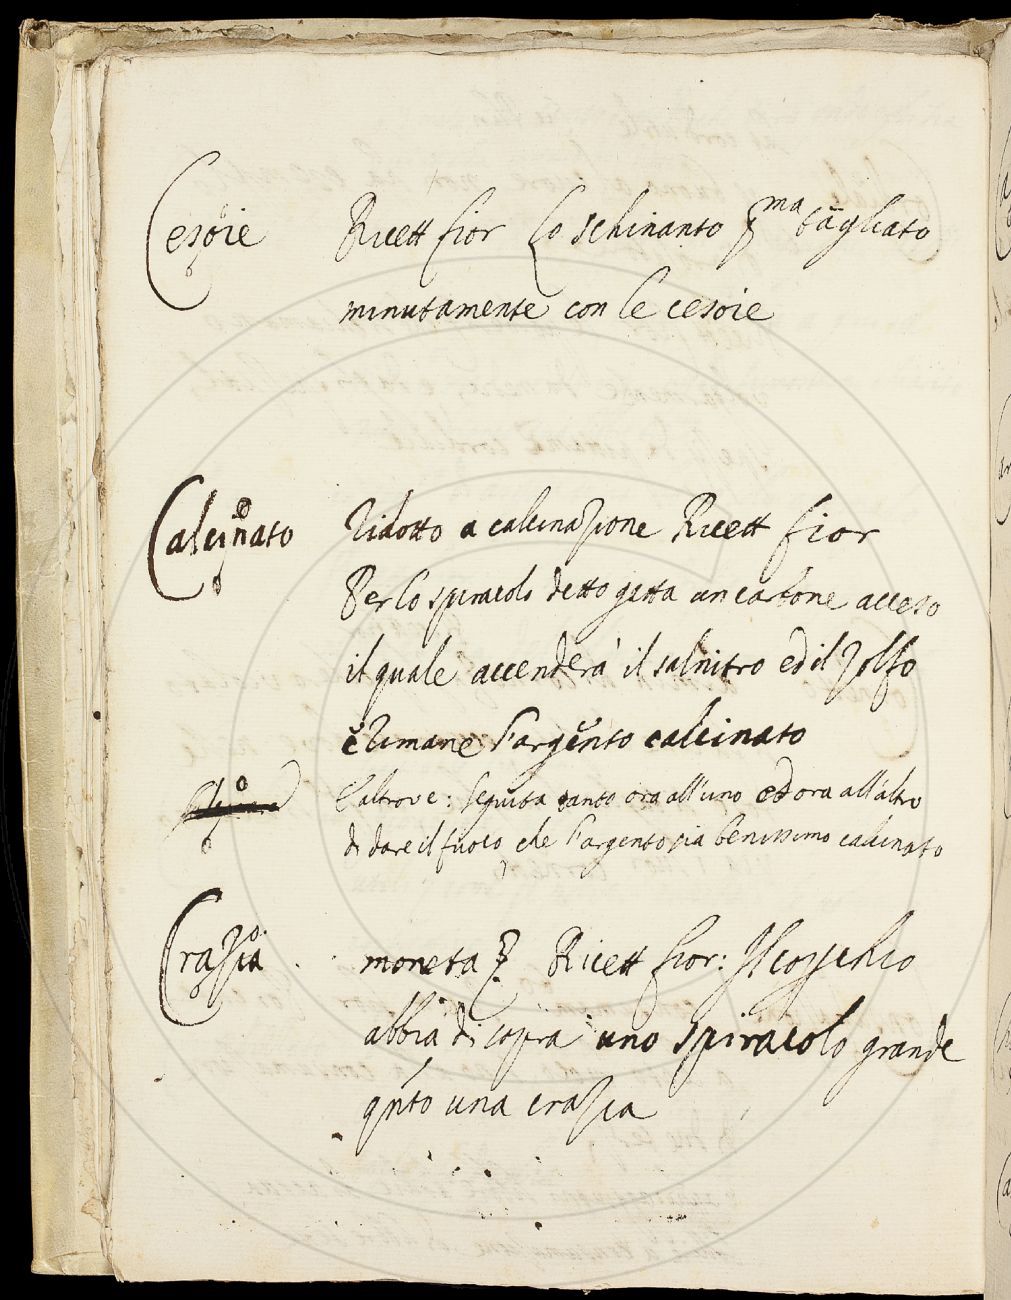 Cesoie Ricett fior Lo schinanto pma tagliato
minutamente con le cesoie
Calcinato ridotto a calcinazione Ricett fior
Per lo spiracolo detto getta un carbone acceso
il quale accenderà il salnitro ed il zolfo
e rimane l'argento calcinato
E altrove: seguita tanto ora all'uno ed ora all'altro
di dare il fuoco che l'argento sia benissimo calcinato
Crazia moneta Ricett fior: Il coperchio
abbia di sopra uno spiracolo grande
qnto una crazia